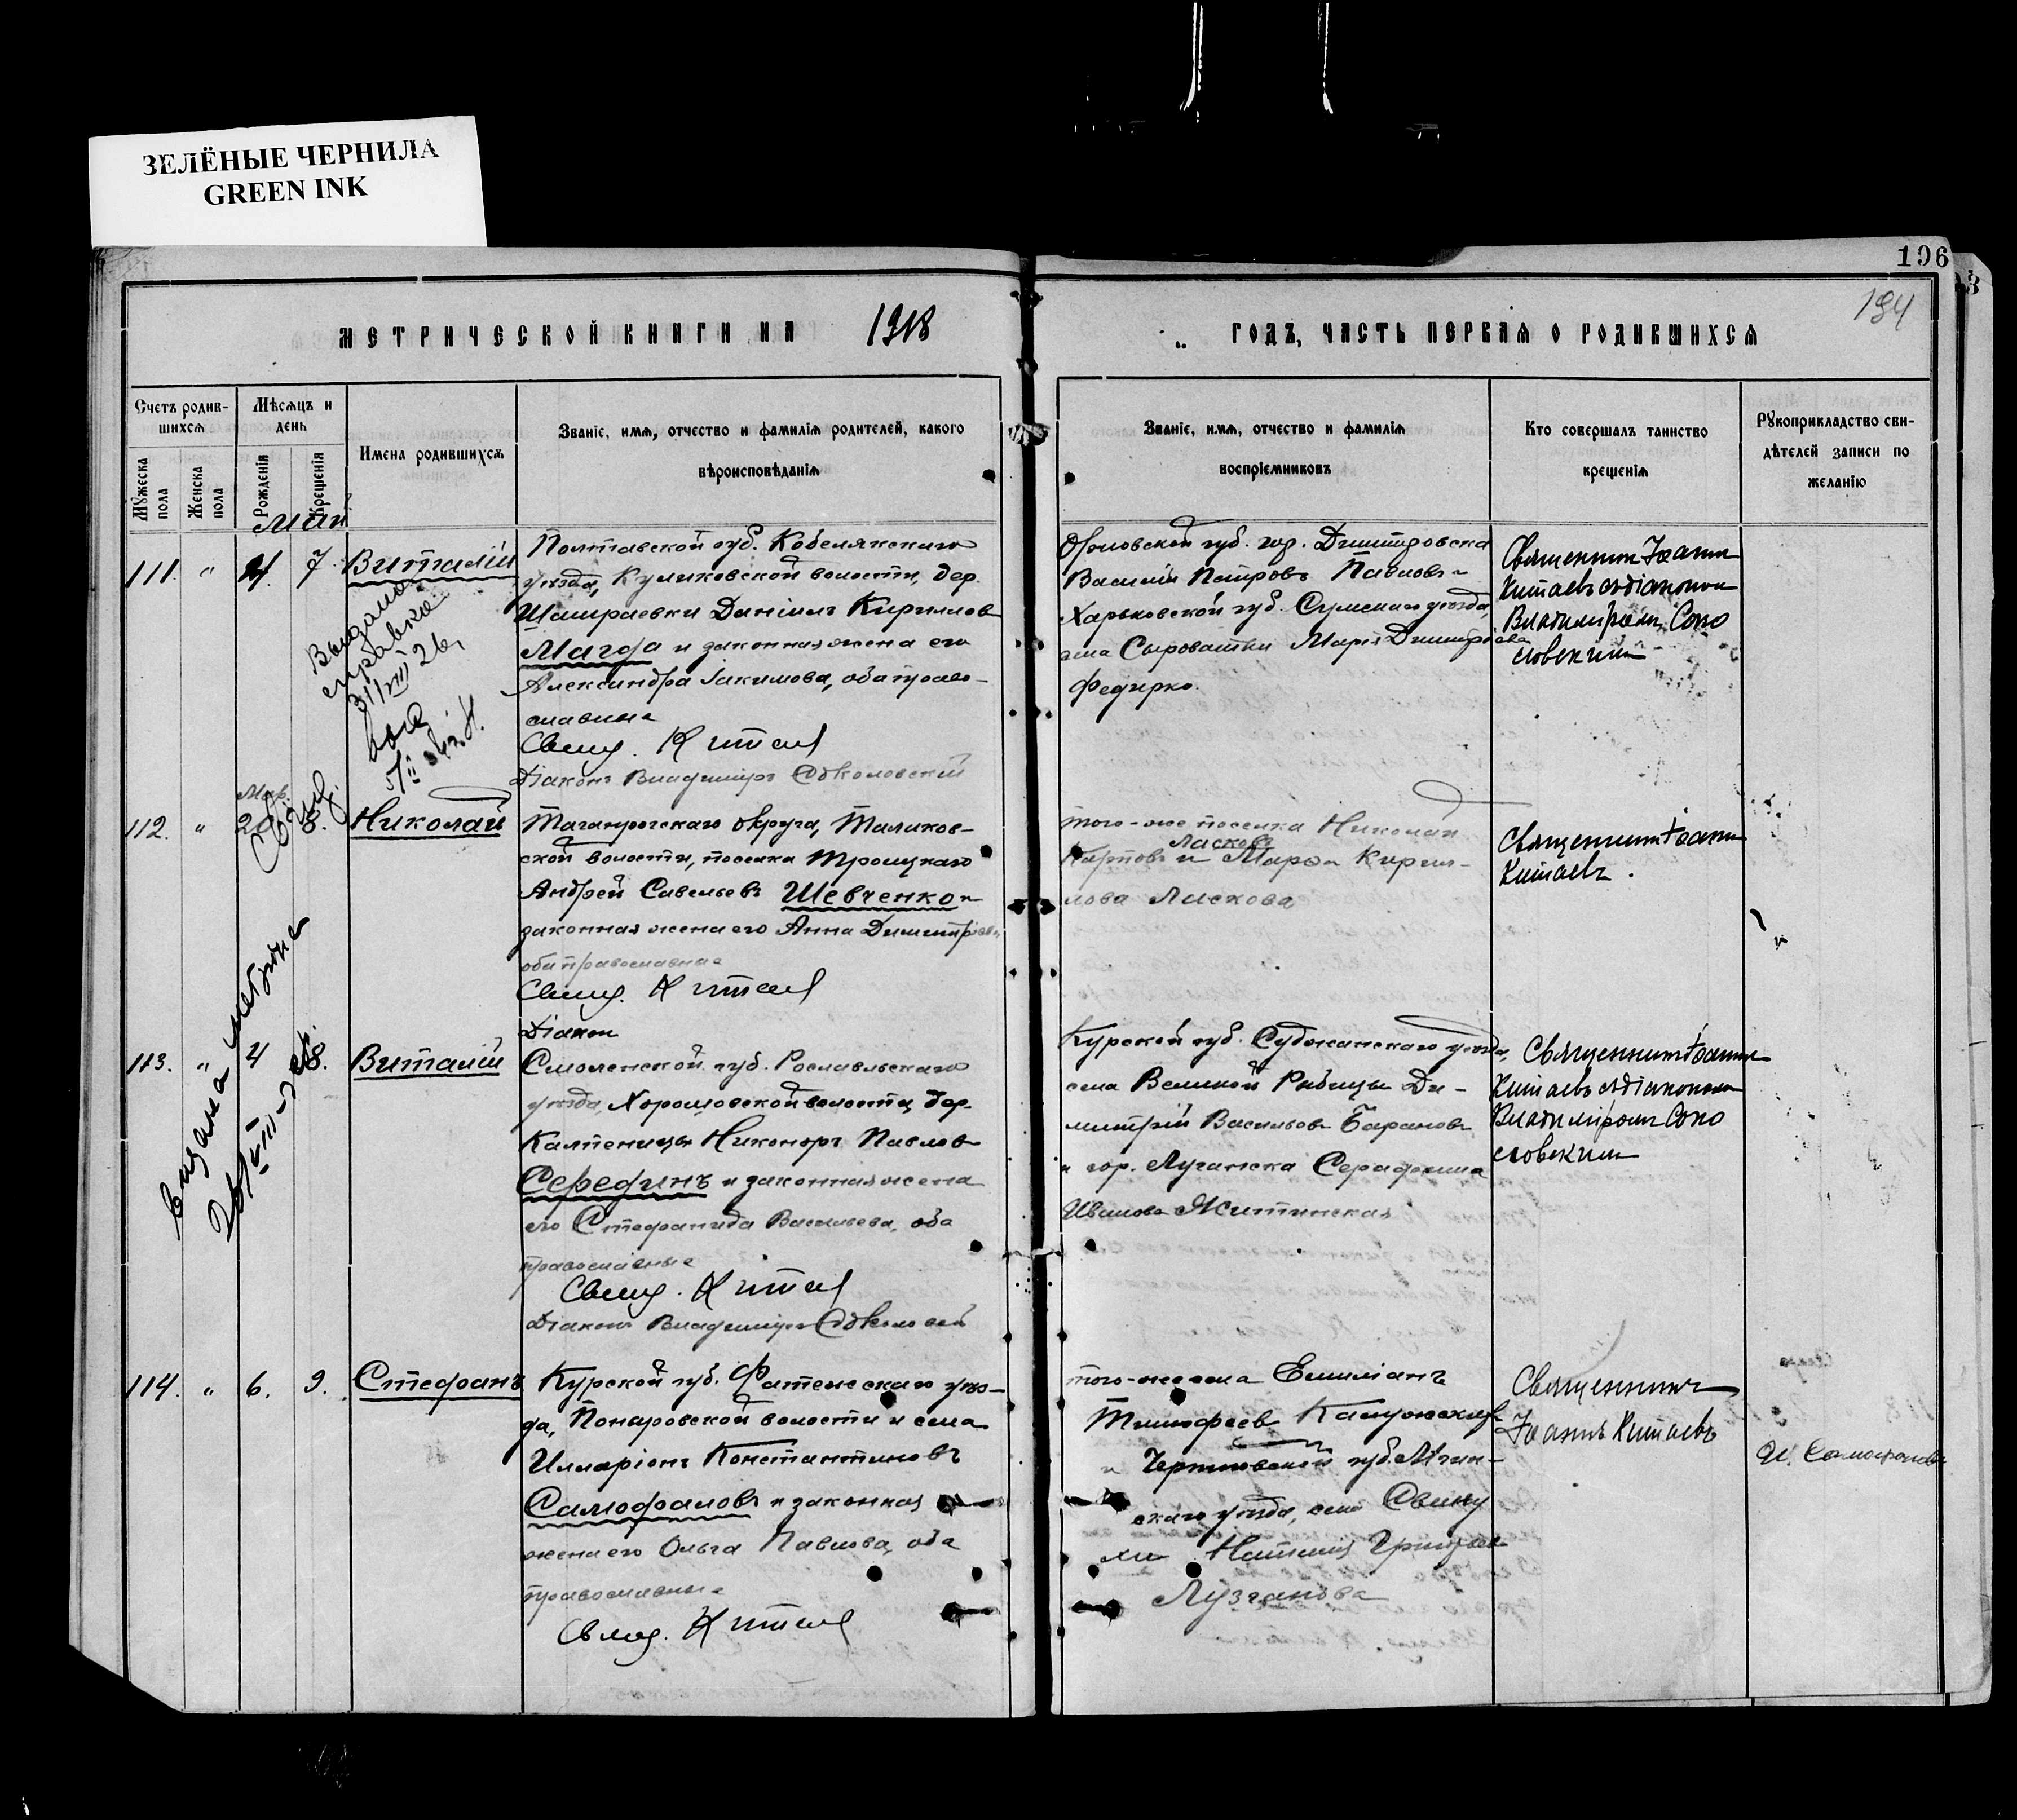 ЗЕЛЁНЫЕ ЧЕРНИЛА
GREEN INK
196
194
МЕТРИЧЕСКОЙ КНИГИ НА 1918
ГОДЪ, ЧАСТЬ ПЕРВАЯ О РОДИВШИХСЯ
Счетъ родив-
шихся
Мужеска пола
Женска пола
Мѣсяцъ и
день
Рожденія
Крещенія
Имена родившихся
Званіе, имя, отчество и фамилія родителей, какого
вѣроисповѣданія
Званіе, имя, отчество и фамилія
воспріемниковъ
Кто совершалъ таинство
крещенія
Рукоприкладство сви-
дѣтелей записи по
желанію
Май
111. " 4 7 Виталій
Выдана
справка
31/VIII 26
Полтавской губ. Кобелякскаго
уѣзда, Куликовской волости, дер.
Даніилъ Кириллов
Магда и законная жена его
Александра Іакимова, оба право-
славные
Свящ. Китаев
Діаконъ Владиміръ Соколовскій
Орловской губ. гор. Дмитровска
Василій Петровъ Павловъ и
Харьковской губ. Сумскаго уѣзда,
села Сыроватки Марія Димитріева
Федирко.
Священник Іоанн
Китаевъ съ діаконом
Владиміром Соко
ловским
112. " 8. Николай
Таганрогскаго округа,
ской волости, поселка Троицкаго
Андрей Савельевъ Шевченко и
законная жена его Анна Димитріев.
оба православные
Свящ. Китаев
Діакон
того-же поселка Николай
Карповъ Ласковъ и Марѳа Кирил-
лова Ласкова
Священник Іоанн
Китаевъ.
Выдана метрика
113. " 4 8. Виталій
Смоленской губ. Рославльскаго
уѣзда, волости, дер.
Никоноръ Павлов
Серединъ и законная жена
его Стефанида Васильева, оба
православные
Свящ. Китаев
Діаконъ Владиміръ
Курской губ. Суджанскаго уѣзда,
села Великой Рыбицы Ди-
митрій Васильевъ Барановъ
и гор. Луганска Серафима
Иванова Житинская
Священник Іоанн
Китаевъ съ діаконом
Владиміром Соко
ловским
114. " 6. 9. Стефанъ
Курской губ. Фатежскаго уѣз-
да, Поныровской волости и села
Илларіонъ Константиновъ
Самофаловъ и законная
жена его Ольга Павлова, оба
православные
Свящ. Китаев
того-же села Емиліанъ
Тимофеев
и Черниговской губ. Мглин-
скаго уѣзда, села
Наталия
Лузганова
Священникъ
Іоаннъ Китаевъ
И. Самофалов